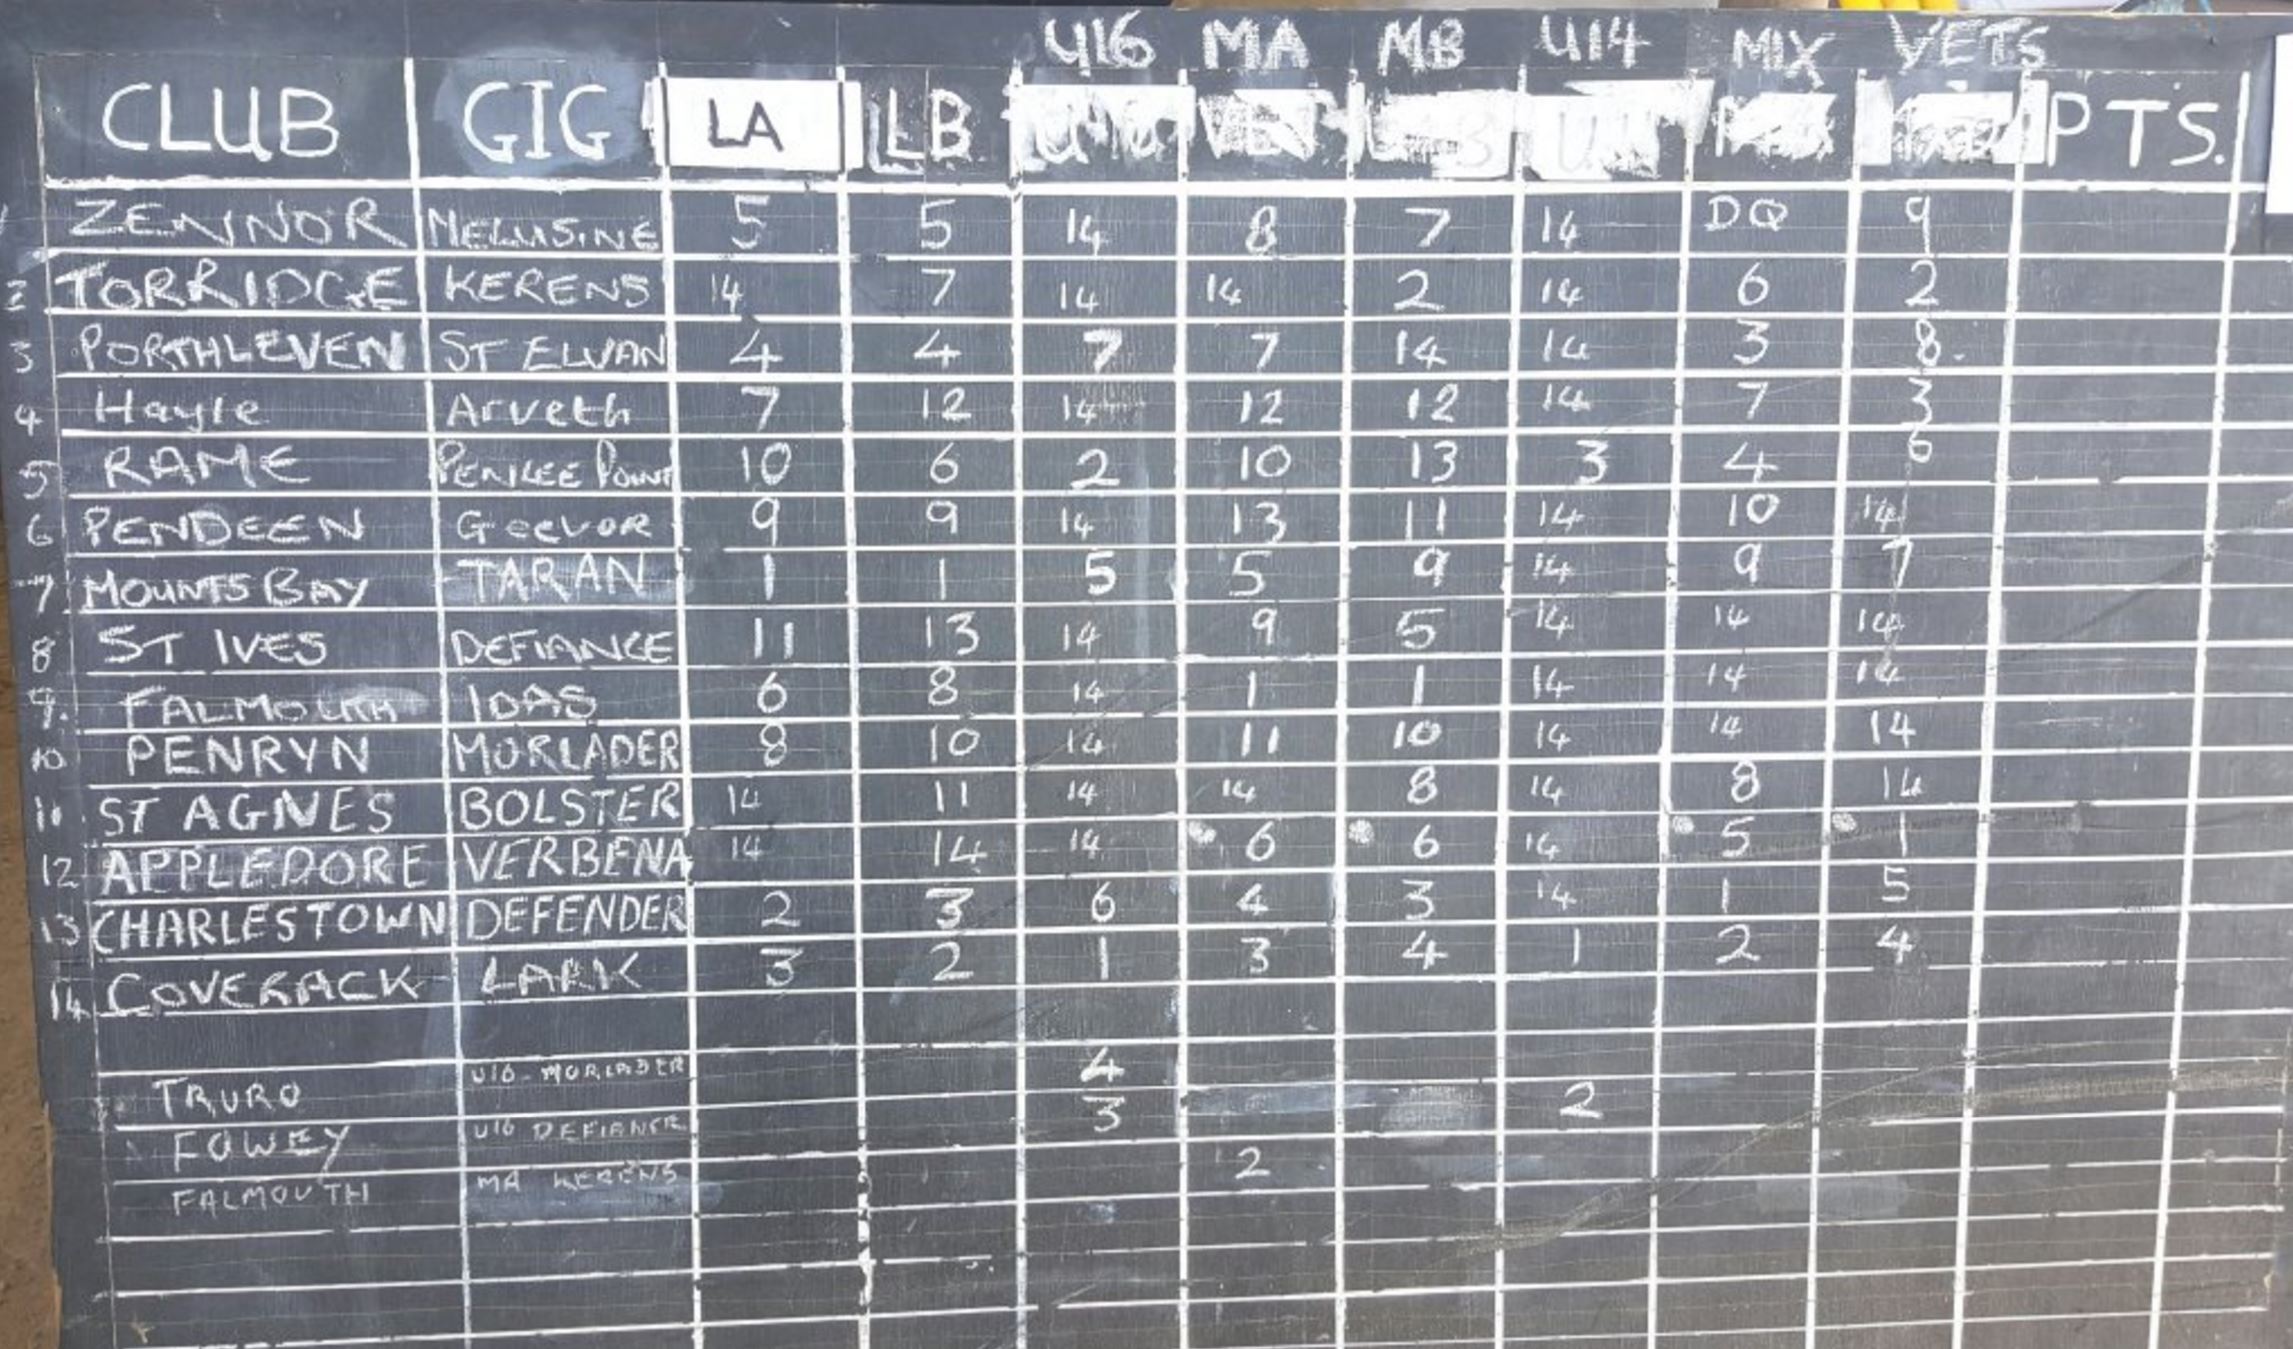 U16 MA MB U14 MIX VETS
CLUB GIG LA LB PTS.
1 ZENNOR MELUSINE 5 5 14 8 7 14 DQ 9
2 TORRIDGE KERENS 14 7 14 14 2 14 6 2
3 PORTHLEVEN ST ELVAN 4 4 7 7 14 14 3 8.
4 Hayle Arveth 7 12 14 12 12 14 7 3
5 RAME PENLEE POINT 10 6 2 10 13 3 4 6
6 PENDEEN Geevor 9 9 14 13 11 14 10 14
7 MOUNTS BAY TARAN 1 1 5 5 9 14 9 7
8 ST IVES DEFIANCE 11 13 14 9 5 14 14 14
9. FALMOUTH IDAS 6 8 14 1 1 14 14 14
10 PENRYN MORLADER 8 10 14 11 10 14 14 14
11 ST AGNES BOLSTER 14 11 14 14 8 14 8 14
12 APPLEDORE VERBENA 14 14 14 6 6 14 5 1
13 CHARLESTOWN DEFENDER 2 3 6 4 3 14 1 5
14 COVERACK LARK 3 2 1 3 4 1 2 4
TRURO U16 - MORLADER 4
FOWEY U16 DEFIANCE 3 2
FALMOUTH MA KERENS 2